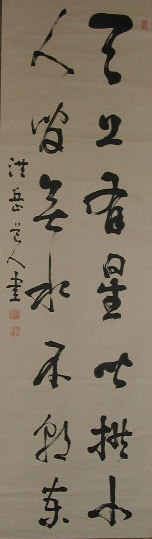 天上有星皆拱北
人間無水不朝東
洪岳人書